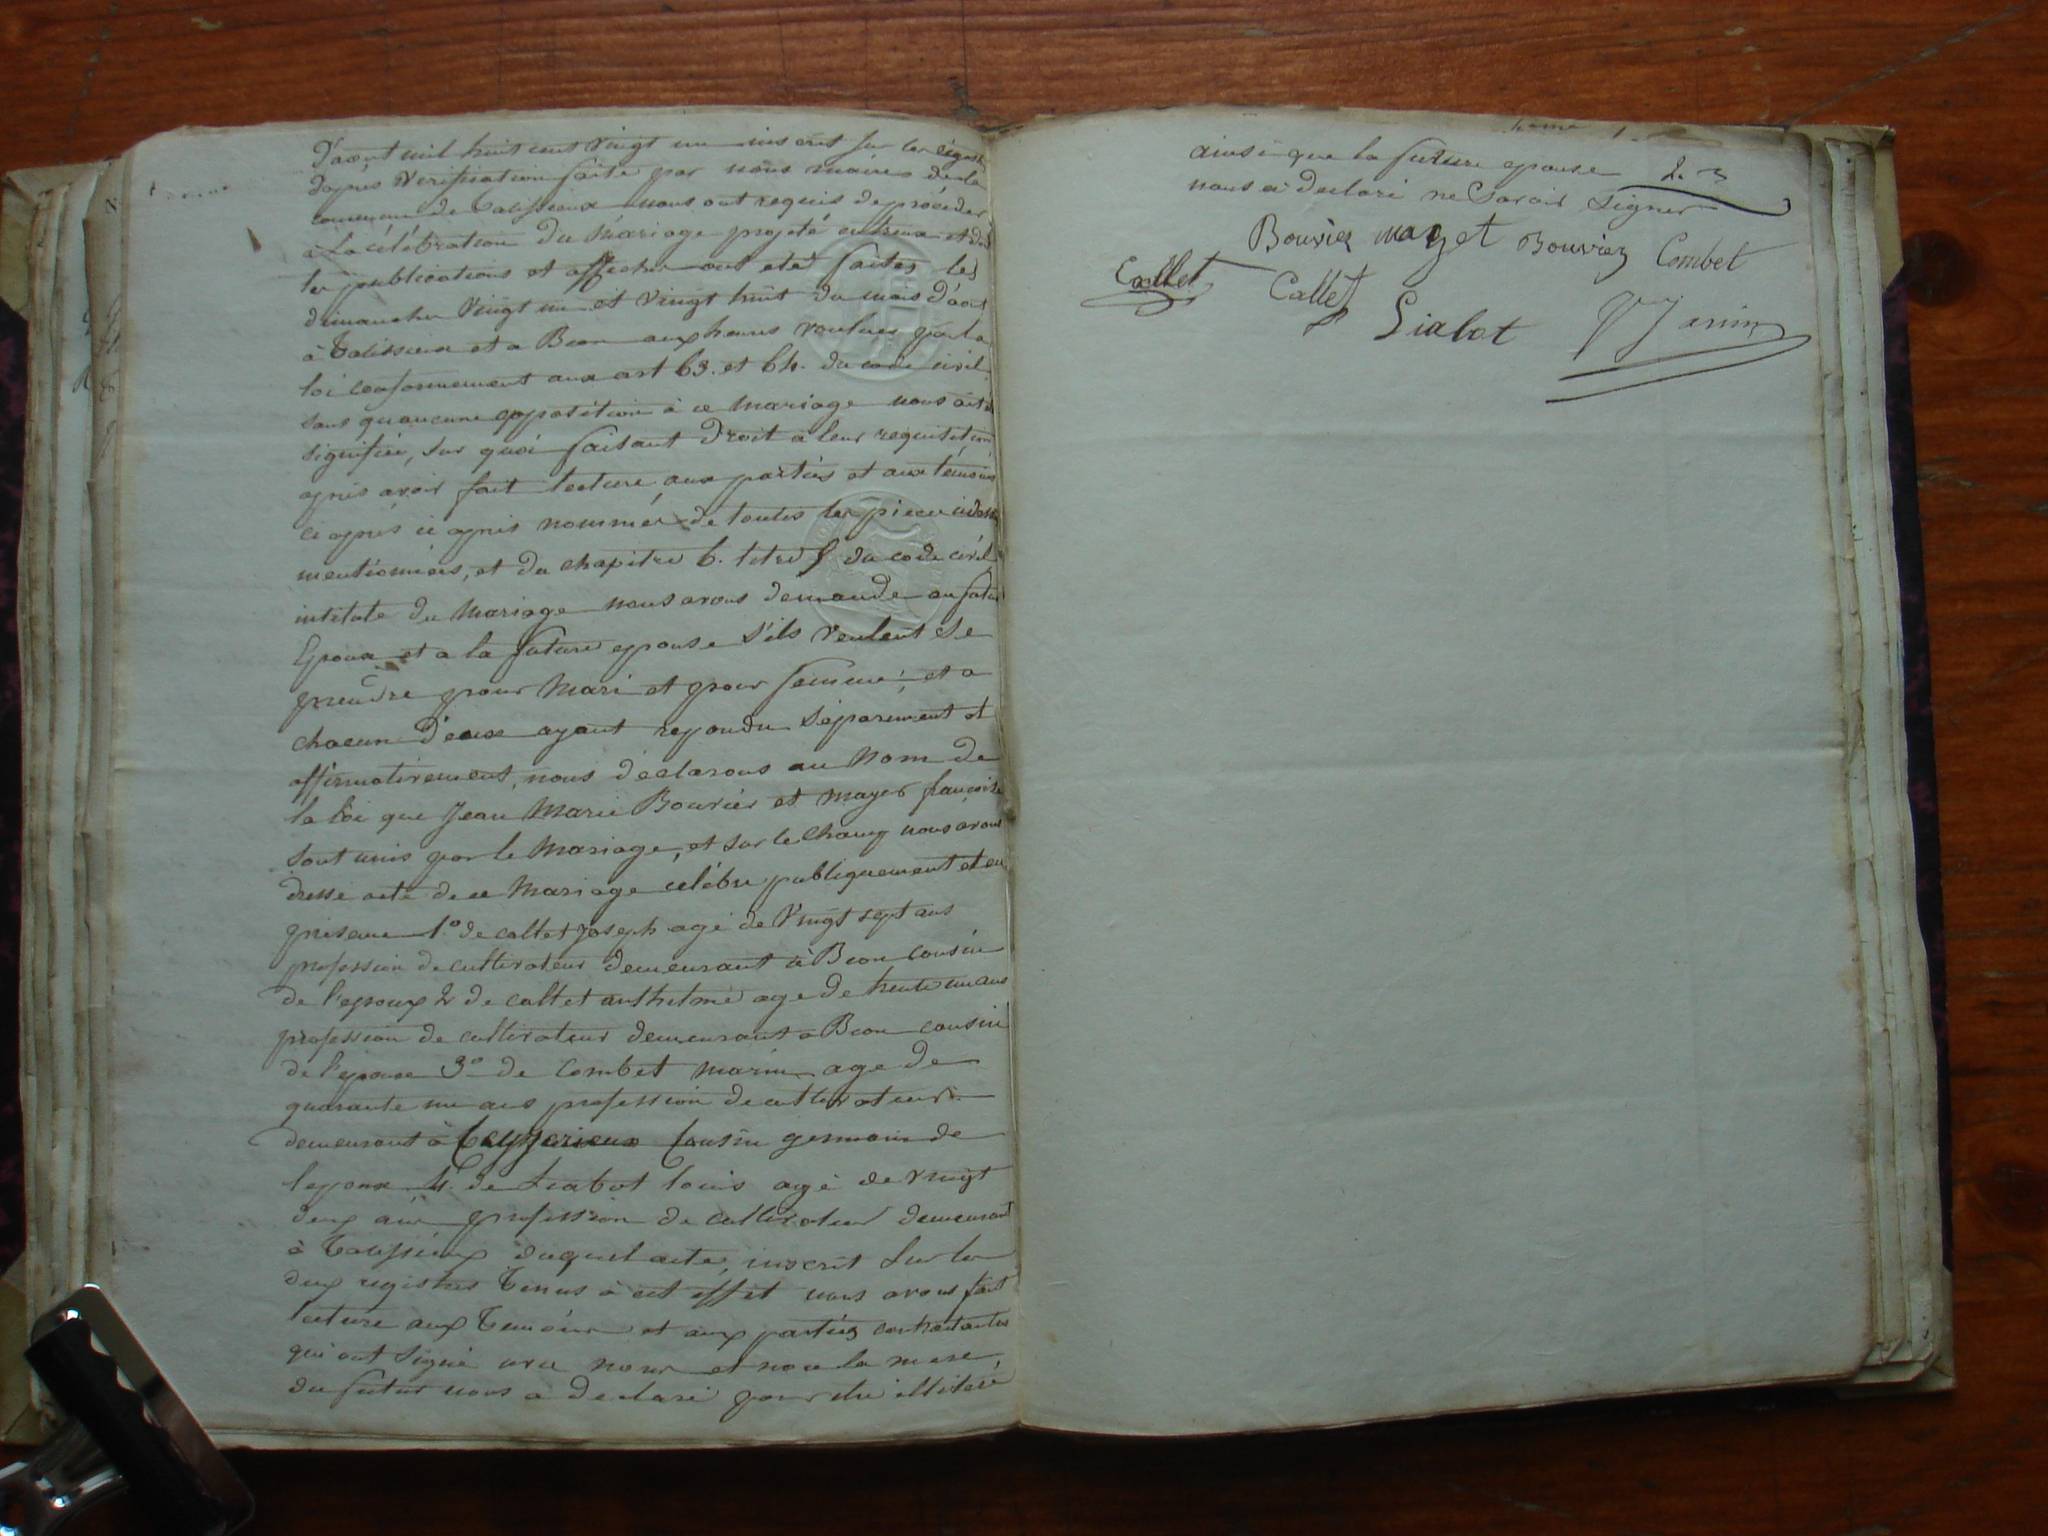 D'août mil huit cent vingt un inscrit sur les
d'après vérification faite par nous maire de la
commune de Talissieux nous ont requis de procéder
à la célébration du mariage projeté entreux et dont
les publications et affiches ont été faites les
dimanches vingt un et vingt huit du mois d'aout
à Talissieux et a Béon aux heures voulues par la
loi conformement aux art 63. et 64. du code civil
sans qu'aucune opposition à ce mariage nous ait été
signifiée, sur quoi faisant droit à leur requisition
après avoir fait lecture aux parties et aux témoins
ci après ci après nommés de toutes les pieces cidessus
mentionnées, et du chapitre 6. titre 5 du code civil
intitulé du mariage nous avons demandé au futur
Epoux et a la future epouse s'ils veulent se
prendre pour mari et pour femme, et a
chacun d'eux ayant repondu séparement et
affirmativement, nous déclarons au nom de
la loi que Jean Marie Bouvier et mayet françoise
sont unis par le Mariage, et sur le champ nous avons
dressé acte de ce Mariage célébré publiquement et en
présence 1.° de callet joseph agé de vingt sept ans
profession de cultivateur demeurant à Béon cousin
de l'epoux 2 de callet anthelme age de trente un ans
profession de cultivateur demeurant a Béon cousin
de l'epouse 3° de Combet marin age de
quarante un ans profession de cultivateur
demeurant à Ceyzerieux Cousin germain de
lepoux 4.° de Liabot louis agé de vingt
deux ans profession de cultivateur demeurant
à Talissieux duquel acte, inscrit sur les
deux registres tenus à cet effet nous avons fait
lecture aux temoins et aux parties contractantes
qui ont signé avec nous et non la mere,
du futur nous a declaré pour etre illiteré
ainsi que la future epouse
nous a declaré ne savoir signer
Bouvier mayet Bouvier Combet
Callet Callet
Liabot Janin